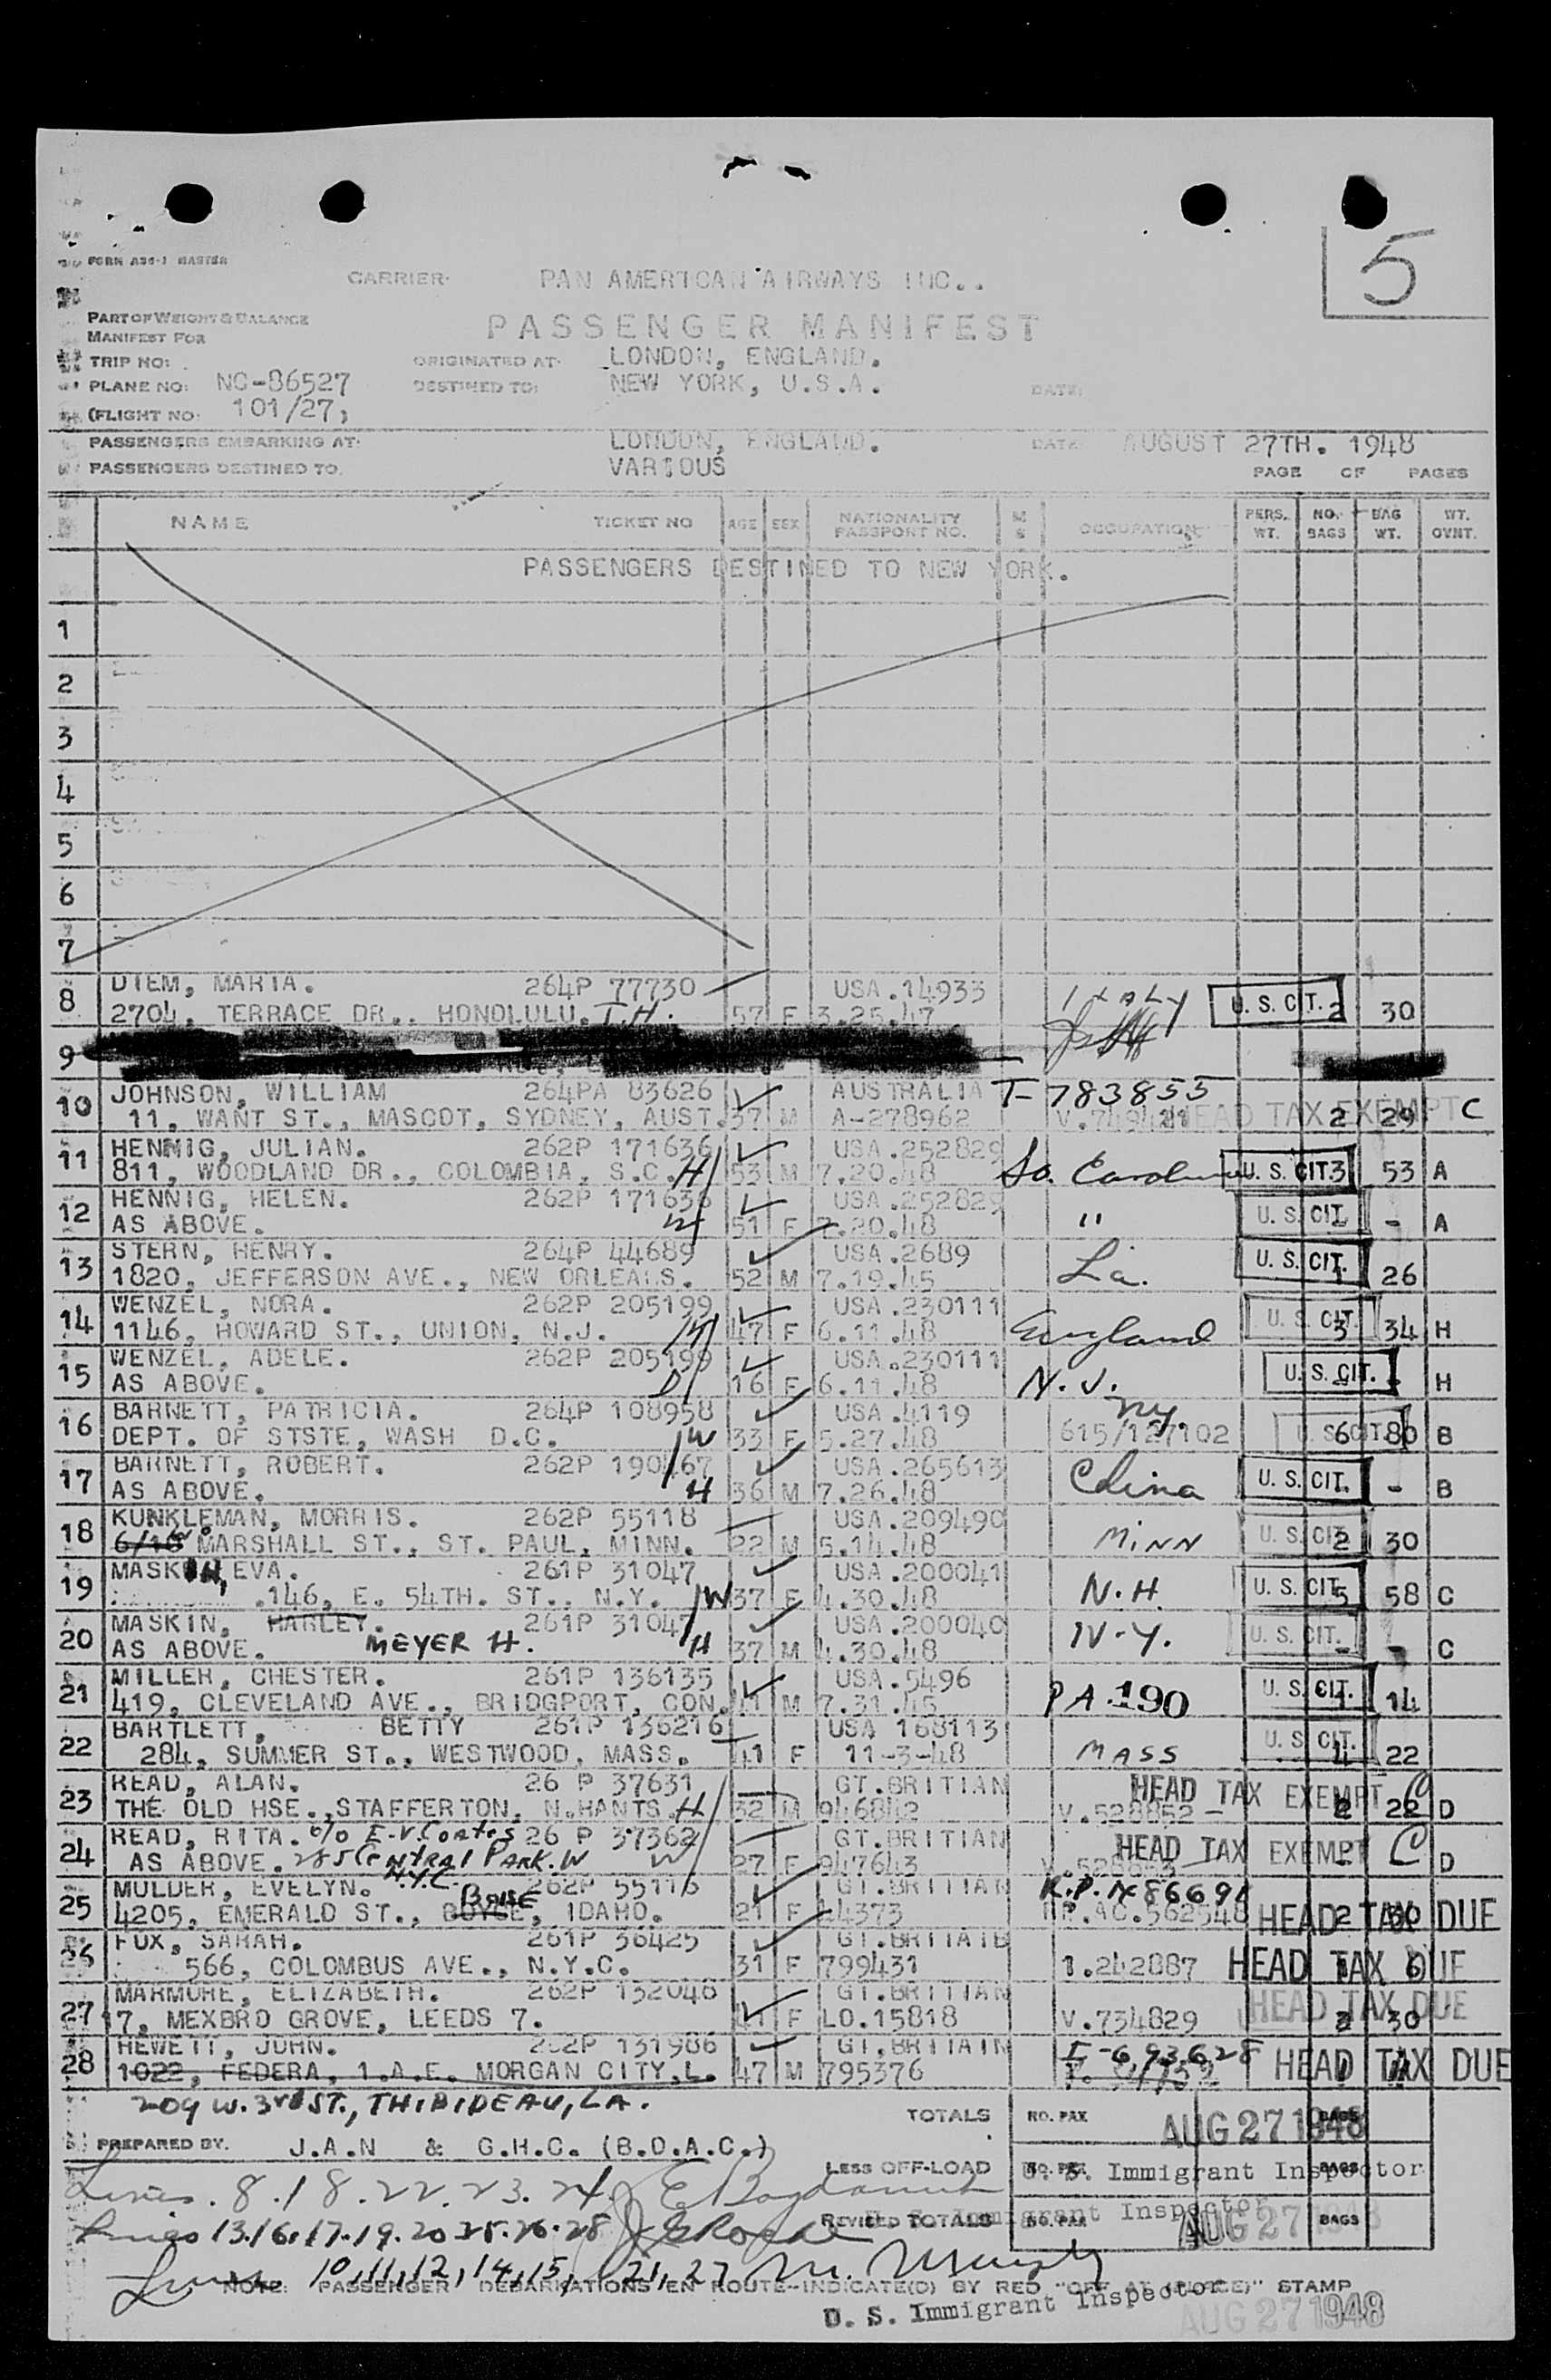 5
FORM ASS-1 MASTER
CARRIER PAN AMERICAN AIRWAYS INC..
PART OF WEIGHT & BALANCE
MANIFEST FOR
PASSENGER MANIFEST
TRIP NO: ORIGINATED AT: LONDON, ENGLAND.
PLANE NO: NC-86527 DESTINED TO: NEW YORK, U.S.A. DATE:
(FLIGHT NO: 101/27)
PASSENGERS EMBARKING AT: LONDON, ENGLAND. DATE AUGUST 27TH. 1948
PASSENGERS DESTINED TO VARIOUS PAGE OF PAGES
NAME TICKET NO AGE SEX NATIONALITY PASSPORT NO. M S OCCUPATION PERS. WT. NO. BAGS BAG WT. WT. OVNT.
PASSENGERS DESTINED TO NEW YORK.
1
2
3
4
5
6
7
8 DIEM, MARIA. 264P 77730 USA.14933 ITALY U.S.CIT.
2704, TERRACE DR., HONOLULU. T.H. 57 F 3.25.47 2 30
9
10 JOHNSON, WILLIAM 264PA 83626 AUSTRALIA T-783855
11, WANT ST., MASCOT, SYDNEY, AUST. 37 M A-278962 HEAD TAX EXEMPT 2 29 C
11 HENNIG, JULIAN. 262P 171636 USA.252829
811, WOODLAND DR., COLOMBIA, S.C. H 53 M 7.20.48 So. Carolina U.S.CIT. 3 53 A
12 HENNIG, HELEN. 262P 171636 USA.252829 U.S.CIT.
AS ABOVE. W 51 F 7.20.48 " - A
13 STERN, HENRY. 264P 44689 USA.2689 U.S.CIT.
1820, JEFFERSON AVE., NEW ORLEANS. 52 M 7.19.45 La. 26
14 WENZEL, NORA. 262P 205199 USA.230111 U.S.CIT.
1146, HOWARD ST., UNION, N.J. 47 F 6.11.48 England 3 34 H
15 WENZEL, ADELE. 262P 205199 USA.230111 U.S.CIT.
AS ABOVE. D 16 F 6.11.48 N.J. - H
16 BARNETT, PATRICIA. 264P 108958 USA.4119 NY
DEPT. OF STSTE, WASH D.C. W 33 F 5.27.48 615/127102 U.S.CIT. 6 80 B
17 BARNETT, ROBERT. 262P 190467 USA.265613 U.S.CIT.
AS ABOVE. H 36 M 7.26.48 China - B
18 KUNKLEMAN, MORRIS. 262P 55118 USA.209490 U.S.CIT.
MARSHALL ST., ST. PAUL, MINN. 22 M 5.14.48 MINN 2 30
19 MASKIN, EVA. 261P 31047 USA.200041 U.S.CIT.
146, E. 54TH. ST., N.Y. W 37 F 4.30.48 N.H. 5 58 C
20 MASKIN, HARLEY. 261P 31047 USA.200040 N.Y. U.S.CIT.
AS ABOVE. MEYER H. H 37 M 4.30.48 - - C
21 MILLER, CHESTER. 261P 136135 USA.5496 U.S.CIT.
419, CLEVELAND AVE., BRIDGPORT, CON. M 7.31.45 PA 190 14
22 BARTLETT, BETTY 261P 136216 USA 168113 U.S.CIT.
284, SUMMER ST., WESTWOOD, MASS. 41 F 11-3-48 MASS 4 22
23 READ, ALAN. 26 P 37631 GT.BRITIAN HEAD TAX EXEMPT C
THE OLD HSE., STAFFERTON, N.HANTS. H 32 M 946842 V.528852 2 22 D
24 READ, RITA. c/o E.V. Contes 26 P 37362 GT.BRITIAN HEAD TAX EXEMPT C
AS ABOVE. 285 Central PARK.W W 27 F 947643 V.528853 D
N.Y.C.
25 MULDER, EVELYN. 262P 55116 GT.BRITIAN R.P. 1486691
4205, EMERALD ST., BOYCE, BOISE IDAHO. 21 F 44373 RP.AC.562548 HEAD TAX DUE 2 30
26 FOX, SARAH. 261P 36425 GT.BRITAIB
566, COLOMBUS AVE., N.Y.C. 31 F 799431 1.242887 HEAD TAX DUE
27 MARMORE, ELIZABETH. 262P 132048 GT.BRITIAN
17, MEXBRO GROVE, LEEDS 7. 41 F LO.15818 V.734829 HEAD TAX DUE 2 30
28 HEWETT, JOHN. 262P 131986 GT.BRITAIN I-693628
1022, FEDERA, 1.A.E. MORGAN CITY.L. 47 M 795376 HEAD TAX DUE
209 W. 3rd ST., THIBIDEAU, LA.
TOTALS NO. PAX BAGS
AUG 27 1948
PREPARED BY. J.A.N & G.H.C. (B.O.A.C.)
LESS OFF-LOAD NO. PAX BAGS
U. S. Immigrant Inspector
Lines. 8.18.22.23.24
REVISED TOTALS NO. PAX BAGS
U. S. Immigrant Inspector
AUG 27 1948
Lines 13.16.17.19.20.25.26.28
Lines 10,11,12,14,15,21,27
NOTE: PASSENGER DEBARKATIONS EN ROUTE-INDICATE(D) BY RED "OFF AT (PLACE)" STAMP
U. S. Immigrant Inspector
AUG 27 1948